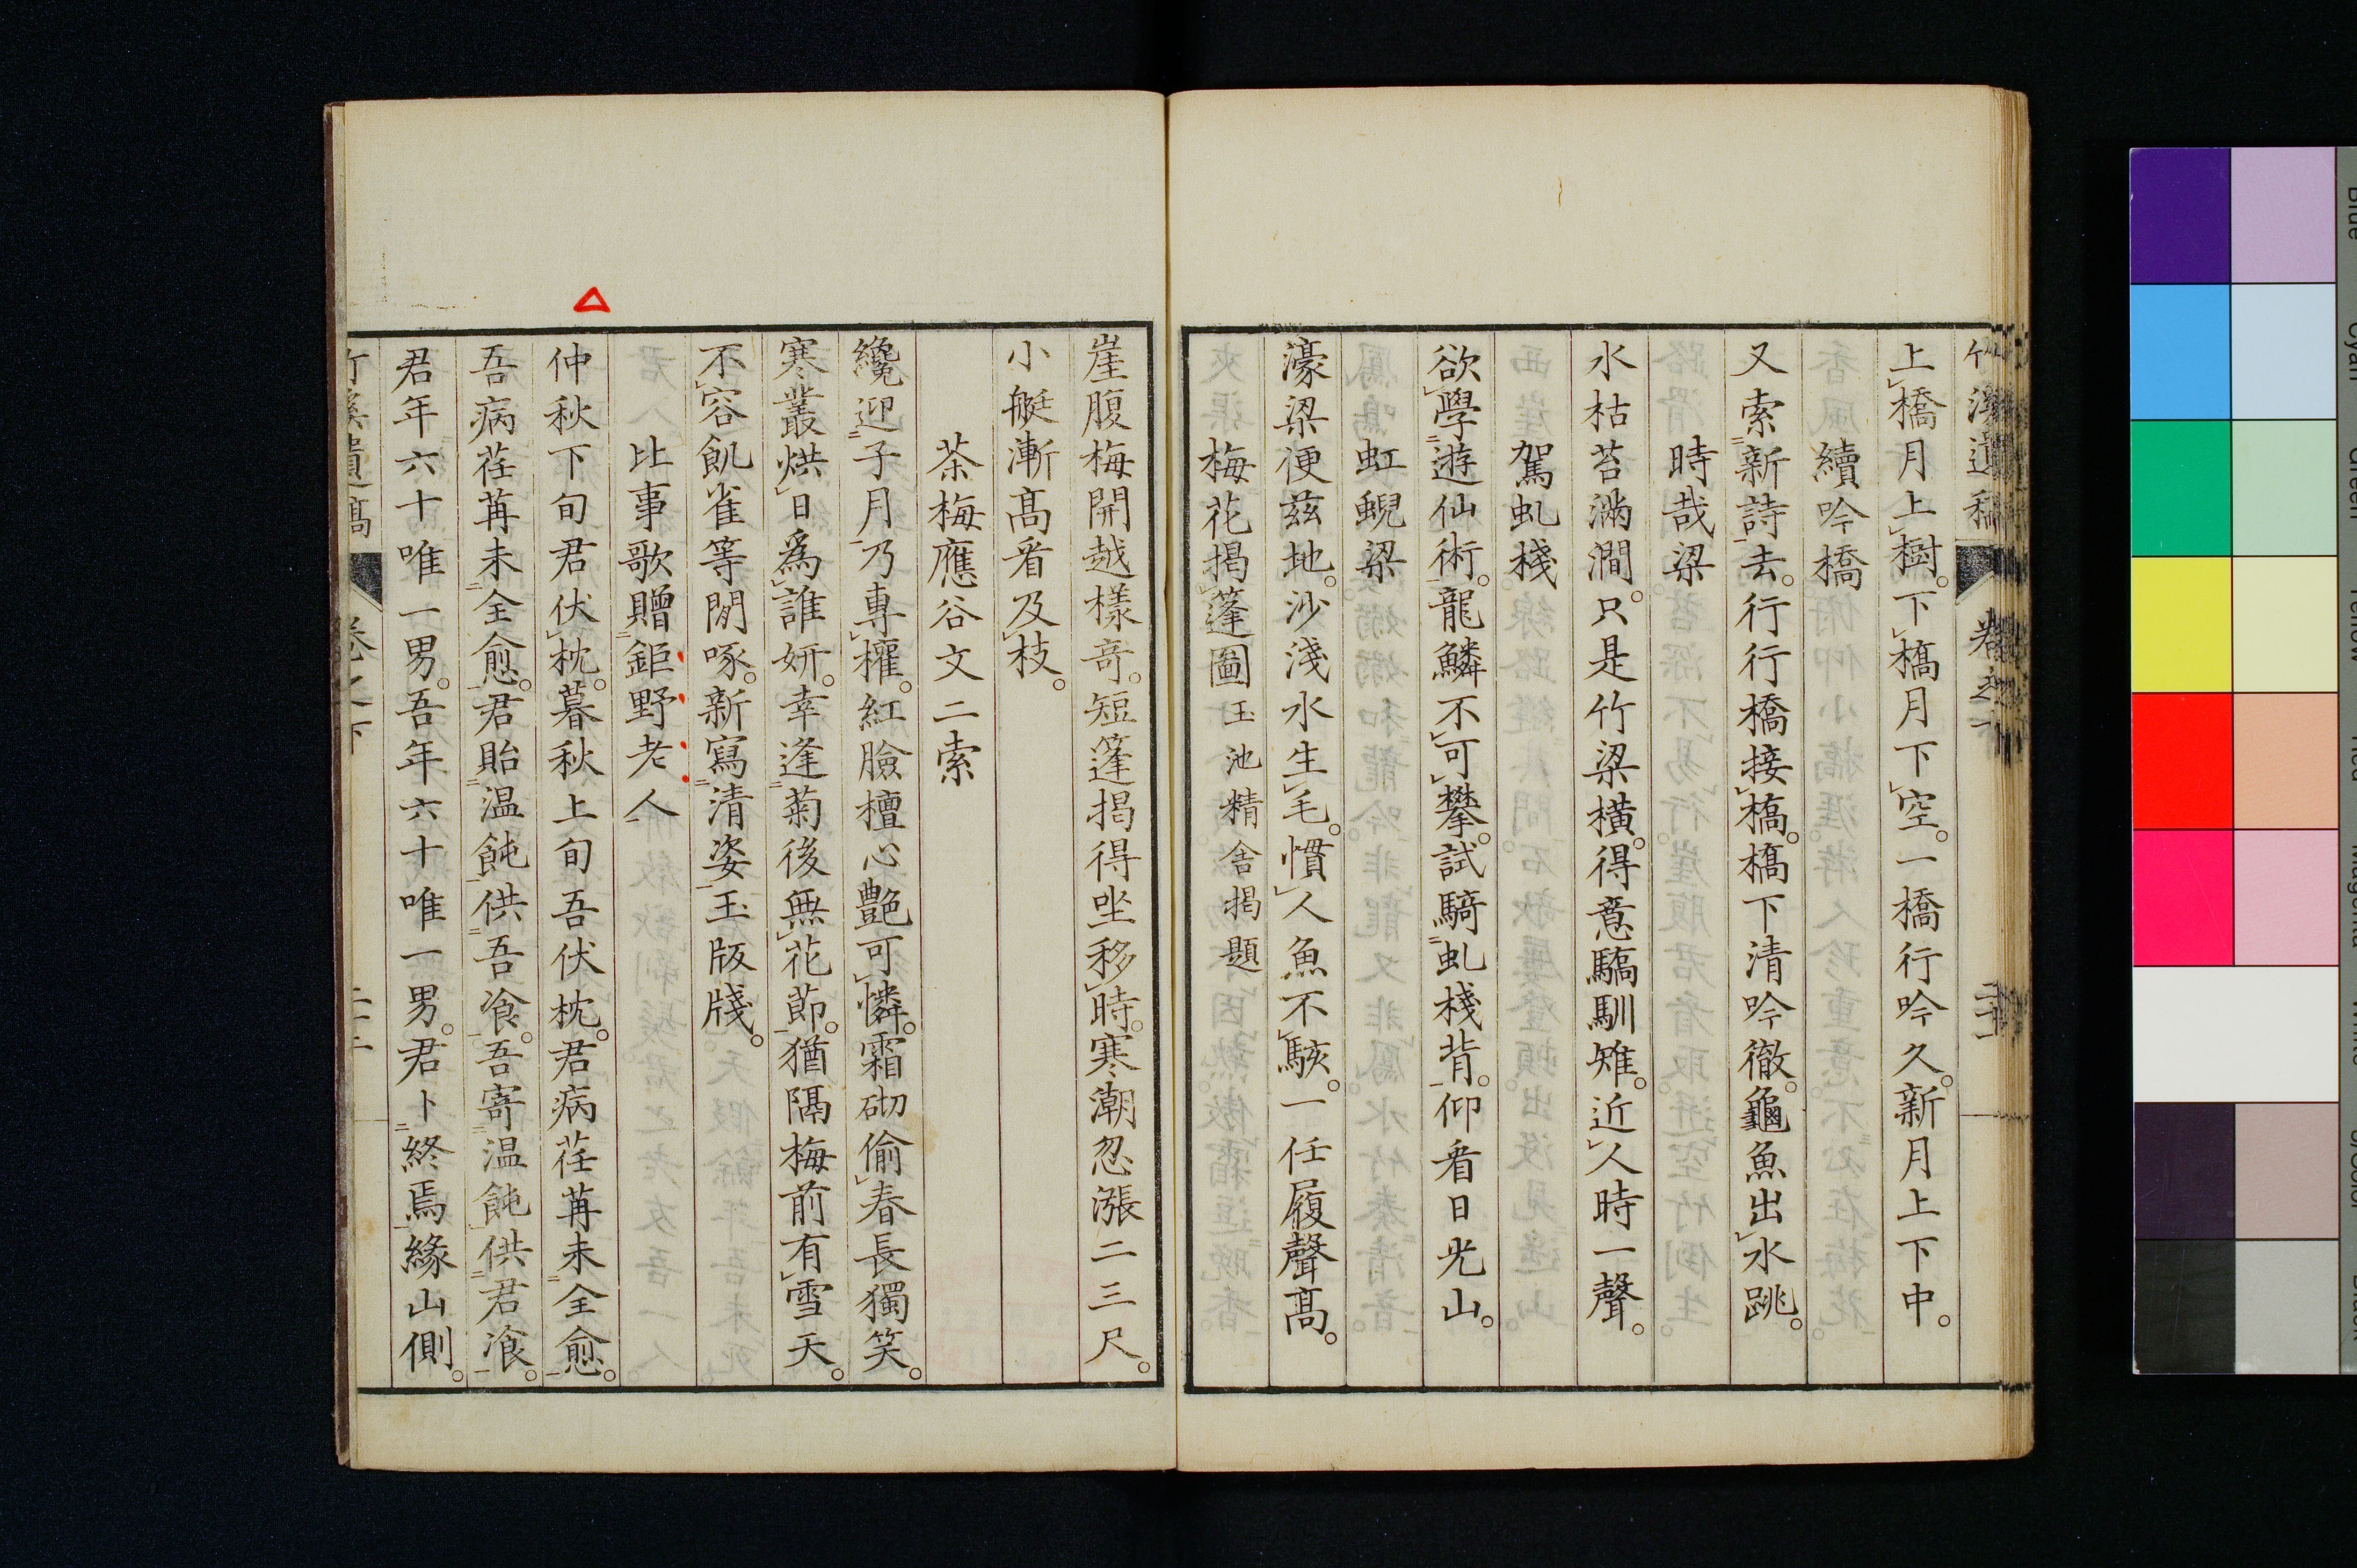 竹溪遺稿 卷之下
上橋月上樹。下橋月下空。一橋行吟久。新月上下中。
續吟橋
又索新詩去。行行橋接橋。橋下清吟徹。龜魚出水跳。
時哉梁
水枯苔滿澗。只是竹梁橫。得意驕馴雉。近人時一聲。
駕虬棧
欲學遊仙術。龍鱗不可攀。試騎虬棧背。仰看日光山。
虹蜺梁
濠梁便茲地。沙淺水生毛。慣人魚不駭。一任履聲高。
梅花揭篷圖 玉池精舍揭題
崖腹梅開越樣奇。短篷揭得坐移時。寒潮忽漲二三尺。
小艇漸高看及枝。
茶梅應谷文二索
纔迎子月乃專權。紅臉檀心艷可憐。霜砌偷春長獨笑。
寒叢烘日為誰妍。幸逢菊後無花節。猶隔梅前有雪天。
不容飢雀等閒啄。新寫清姿玉版牋。
比事歌贈鉅野老人
仲秋下旬君伏枕。暮秋上旬吾伏枕。君病荏苒未全愈。
吾病荏苒未全愈。君貽温飩供吾飡。吾寄温飩供君飡。
君年六十唯一男。吾年六十唯一男。君卜終焉緣山側。